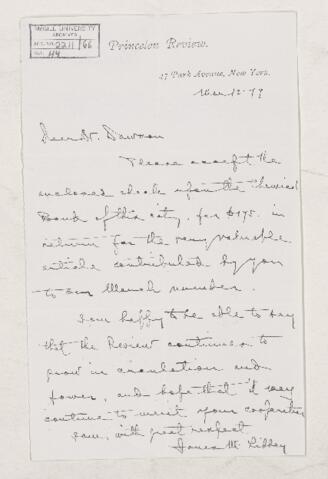 McGILL UNIVERSITY
ARCHIVES
ACC. NO. 2211/66
REF. 44
Princeton Review.
37 Park Avenue, New York.
Mar 12 - 79
Dear Dr. Dawson
Please accept the
enclosed check upon the
Bank of this city, for $175. in
return for the very valuable
article contributed by you
to our March number.
I am happy to be able to say
that the Review continues to
grow in circulation and
power, and hope that it may
continue to merit your cooperation
I am, with great respect